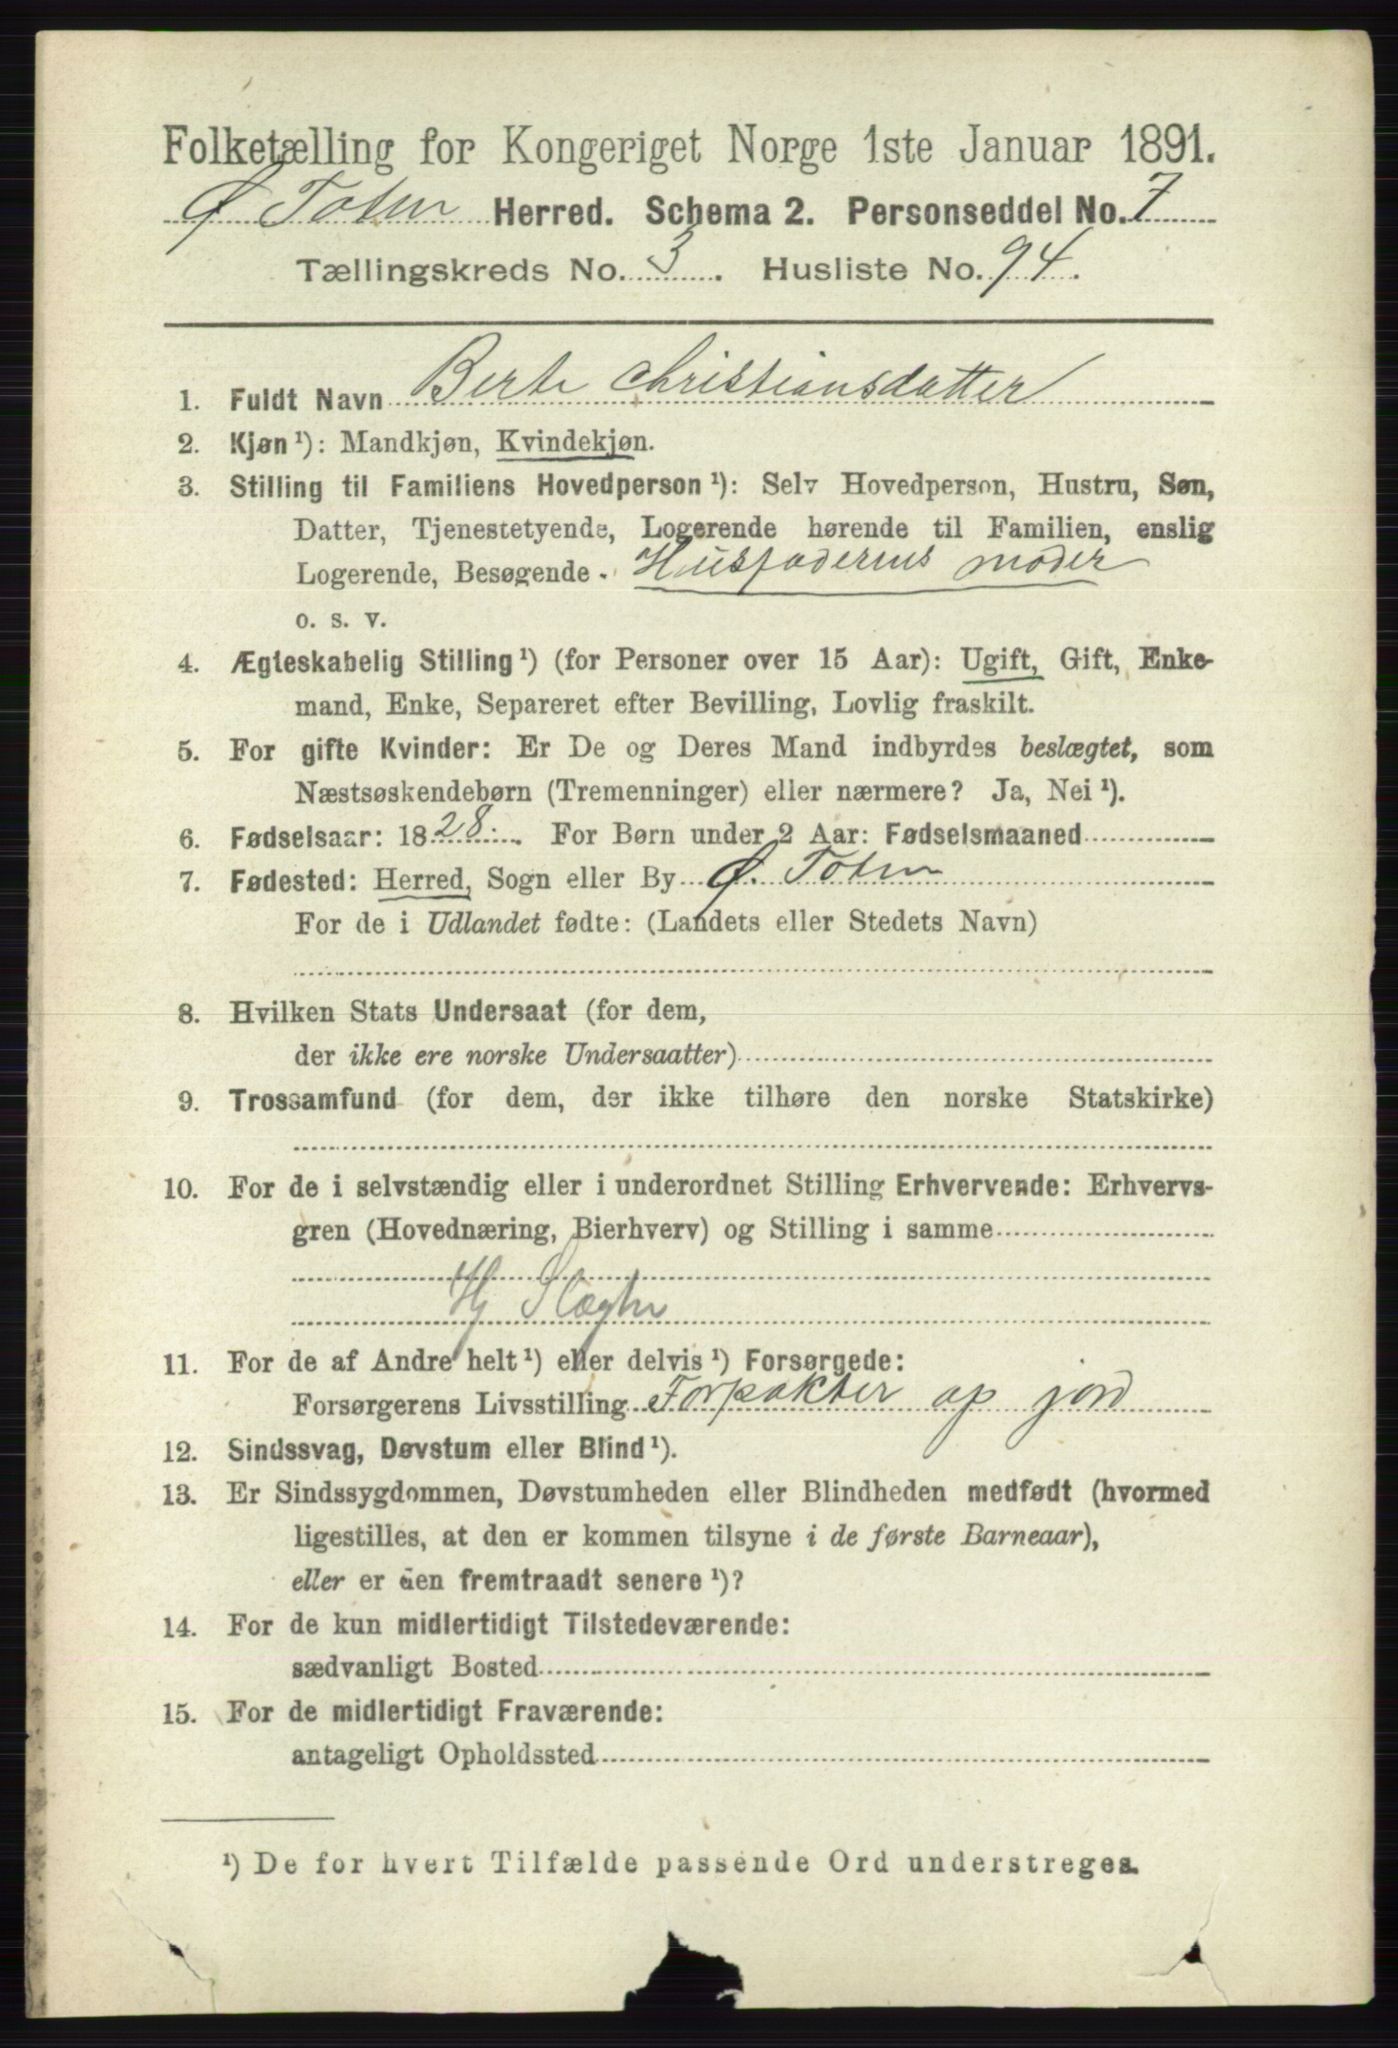 Folketælling for Kongeriget Norge 1ste Januar 1891.
Ø Toten Herred. Schema 2. Personseddel No. 7
Tællingskreds No. 3. Husliste No. 94.
1. Fuldt Navn Berte Christiansdatter
2. Kjøn ¹): Mandkjøn, Kvindekjøn.
3. Stilling til Familiens Hovedperson ¹): Selv Hovedperson, Hustru, Søn,
Datter, Tjenestetyende, Logerende hørende til Familien, enslig
Logerende, Besøgende . Husfaderens moder
o. s. v.
4. Ægteskabelig Stilling ¹) (for Personer over 15 Aar): Ugift, Gift, Enke-
mand, Enke, Separeret efter Bevilling, Lovlig fraskilt.
5. For gifte Kvinder: Er De og Deres Mand indbyrdes beslægtet, som
Næstsøskendebørn (Tremenninger) eller nærmere? Ja, Nei ¹).
6. Fødselsaar: 1828. For Børn under 2 Aar: Fødselsmaaned
7. Fødested: Herred, Sogn eller By Ø. Toten
For de i Udlandet fødte: (Landets eller Stedets Navn)
8. Hvilken Stats Undersaat (for dem,
der ikke ere norske Undersaatter)
9. Trossamfund (for dem, der ikke tilhøre den norske Statskirke)
10. For de i selvstændig eller i underordnet Stilling Erhvervende: Erhvervs-
gren (Hovednæring, Bierhverv) og Stilling i samme
Hj Slægtn
11. For de af Andre helt ¹) eller delvis ¹) Forsørgede:
Forsørgerens Livsstilling Forpakter af jord
12. Sindssvag, Døvstum eller Blind ¹).
13. Er Sindssygdommen, Døvstumheden eller Blindheden medfødt (hvormed
ligestilles, at den er kommen tilsyne i de første Barneaar),
eller er den fremtraadt senere ¹)?
14. For de kun midlertidigt Tilstedeværende:
sædvanligt Bosted
15. For de midlertidigt Fraværende:
antageligt Opholdssted
¹) De for hvert Tilfælde passende Ord understreges.